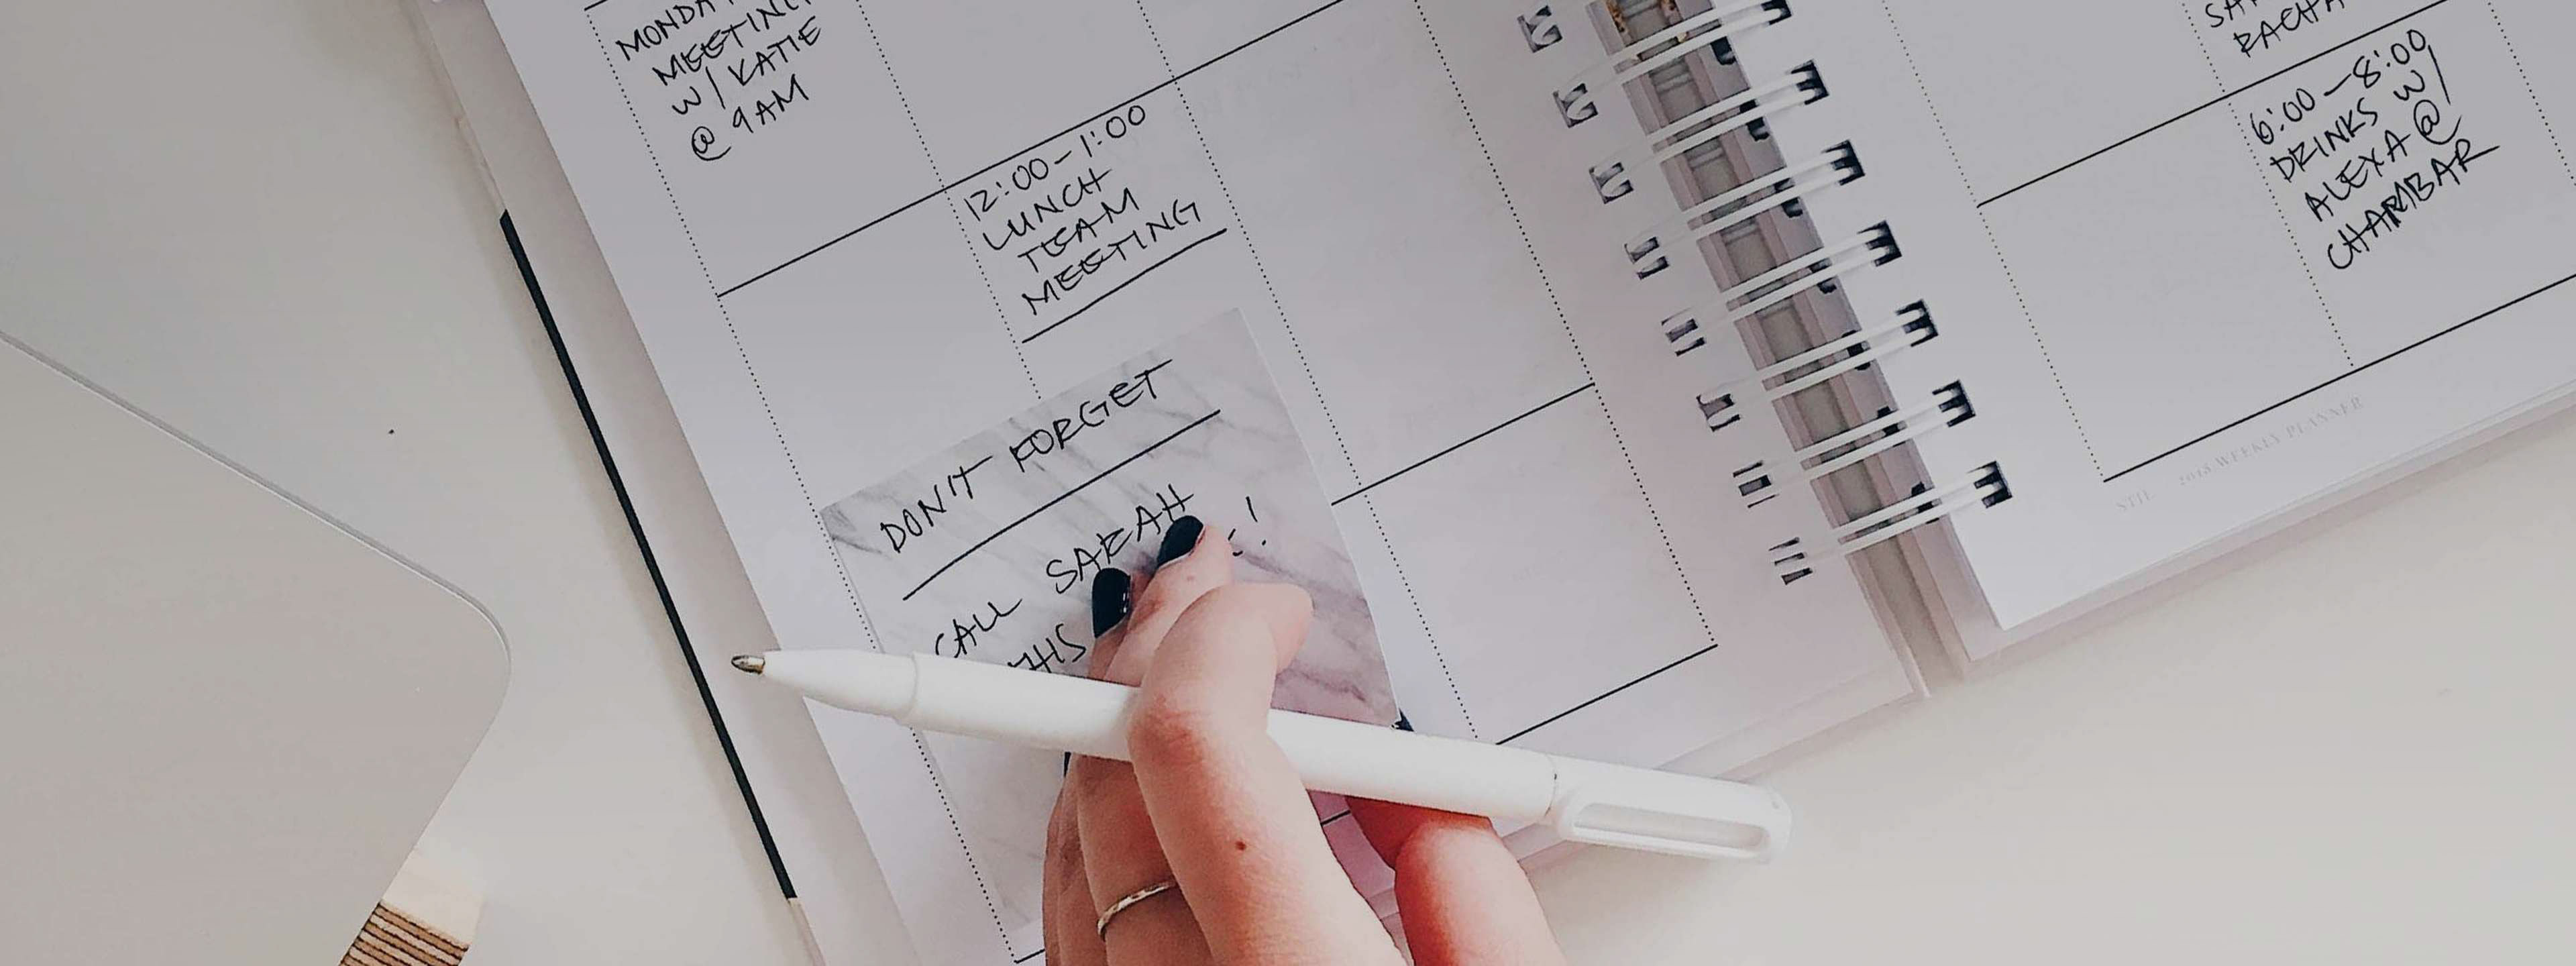 MEETING
W/ KATIE
@ 9AM
12:00-1:00
LUNCH
TEAM
MEETING
DON'T FORGET
CALL SARAH
6:00-8:00
DRINKS W/
ALEXA @
CHAMBAR
2018 WEEKLY PLANNER